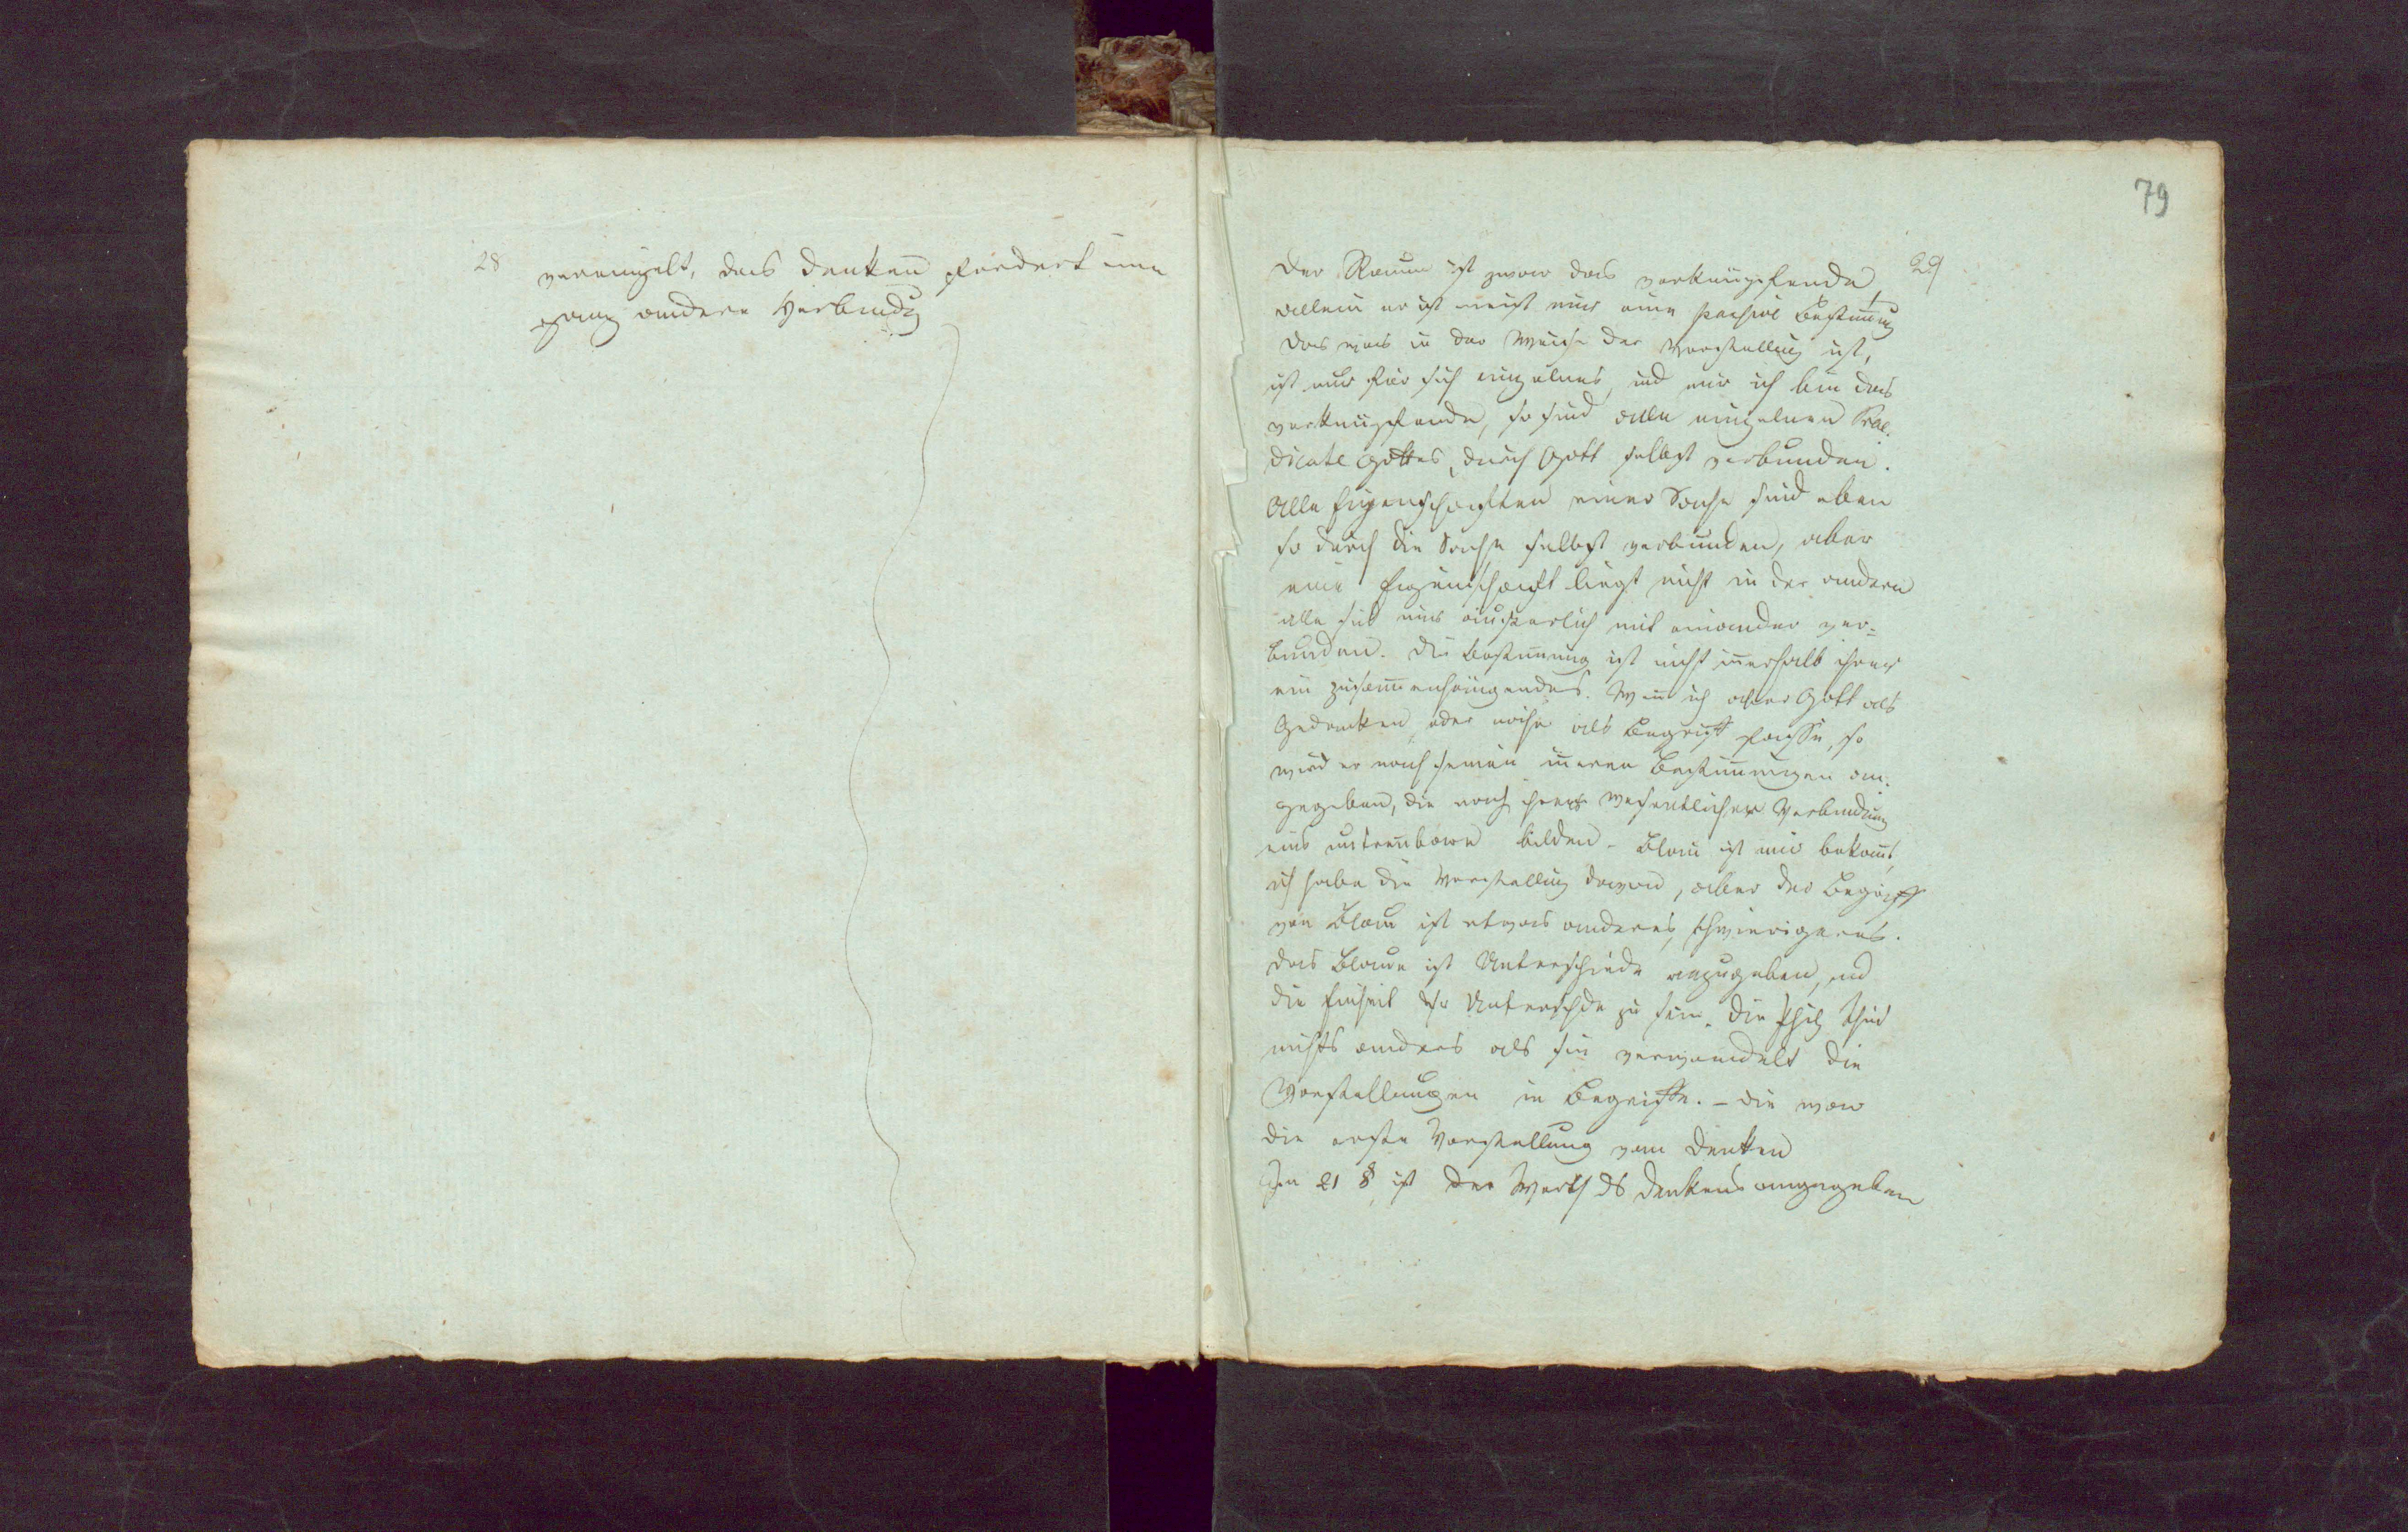 28
vereinzelt, das Denken fordert eine
ganz andere Verbindg
79
29
Der Raum ist zwar das verknüpfende,
allein er ist nur eine passive Bestimung
das was in der Weise der Vorstellung ist,
ist nur für sich einzelnes, und nur ich bin das
verknüpfende, so sind alle einzelnen Prae-
dicate Gottes, durch Gott selbst verbunden.
Alle Eigenschaften einer Sache sind eben
so durch die Sache selbst verbunden, aber
eine Eigenschaft liegt nicht in der andern
alle sind nur äußerlich mit einander ver=
bunden. Die Bestimung ist nicht inerhalb ihrer
ein zusamenhängendes. Wen ich aber Gott als
Gedanken, oder näher als Begriff fasse, so
wird er nach seinen ineren Bestimungen an-
gegeben, die nach ihrer wesentlichen Verbindung
eins untrenbare bilden. Blau ist mir bekant,
ich habe die Vorstellung davon, aber der Begriff
von Blau ist etwas anderes, schwierigeres.
Das Blaue ist Unterschiede anzugeben, und
die Einheit der Unterschde zu sein. Die Phil thut
nichts anders als sie verwandelt die
Vorstellungen in Begriffe. – die war
die erste Vorstellung vom Denken
Im 21 § ist der Werth ds Denkens angegeben